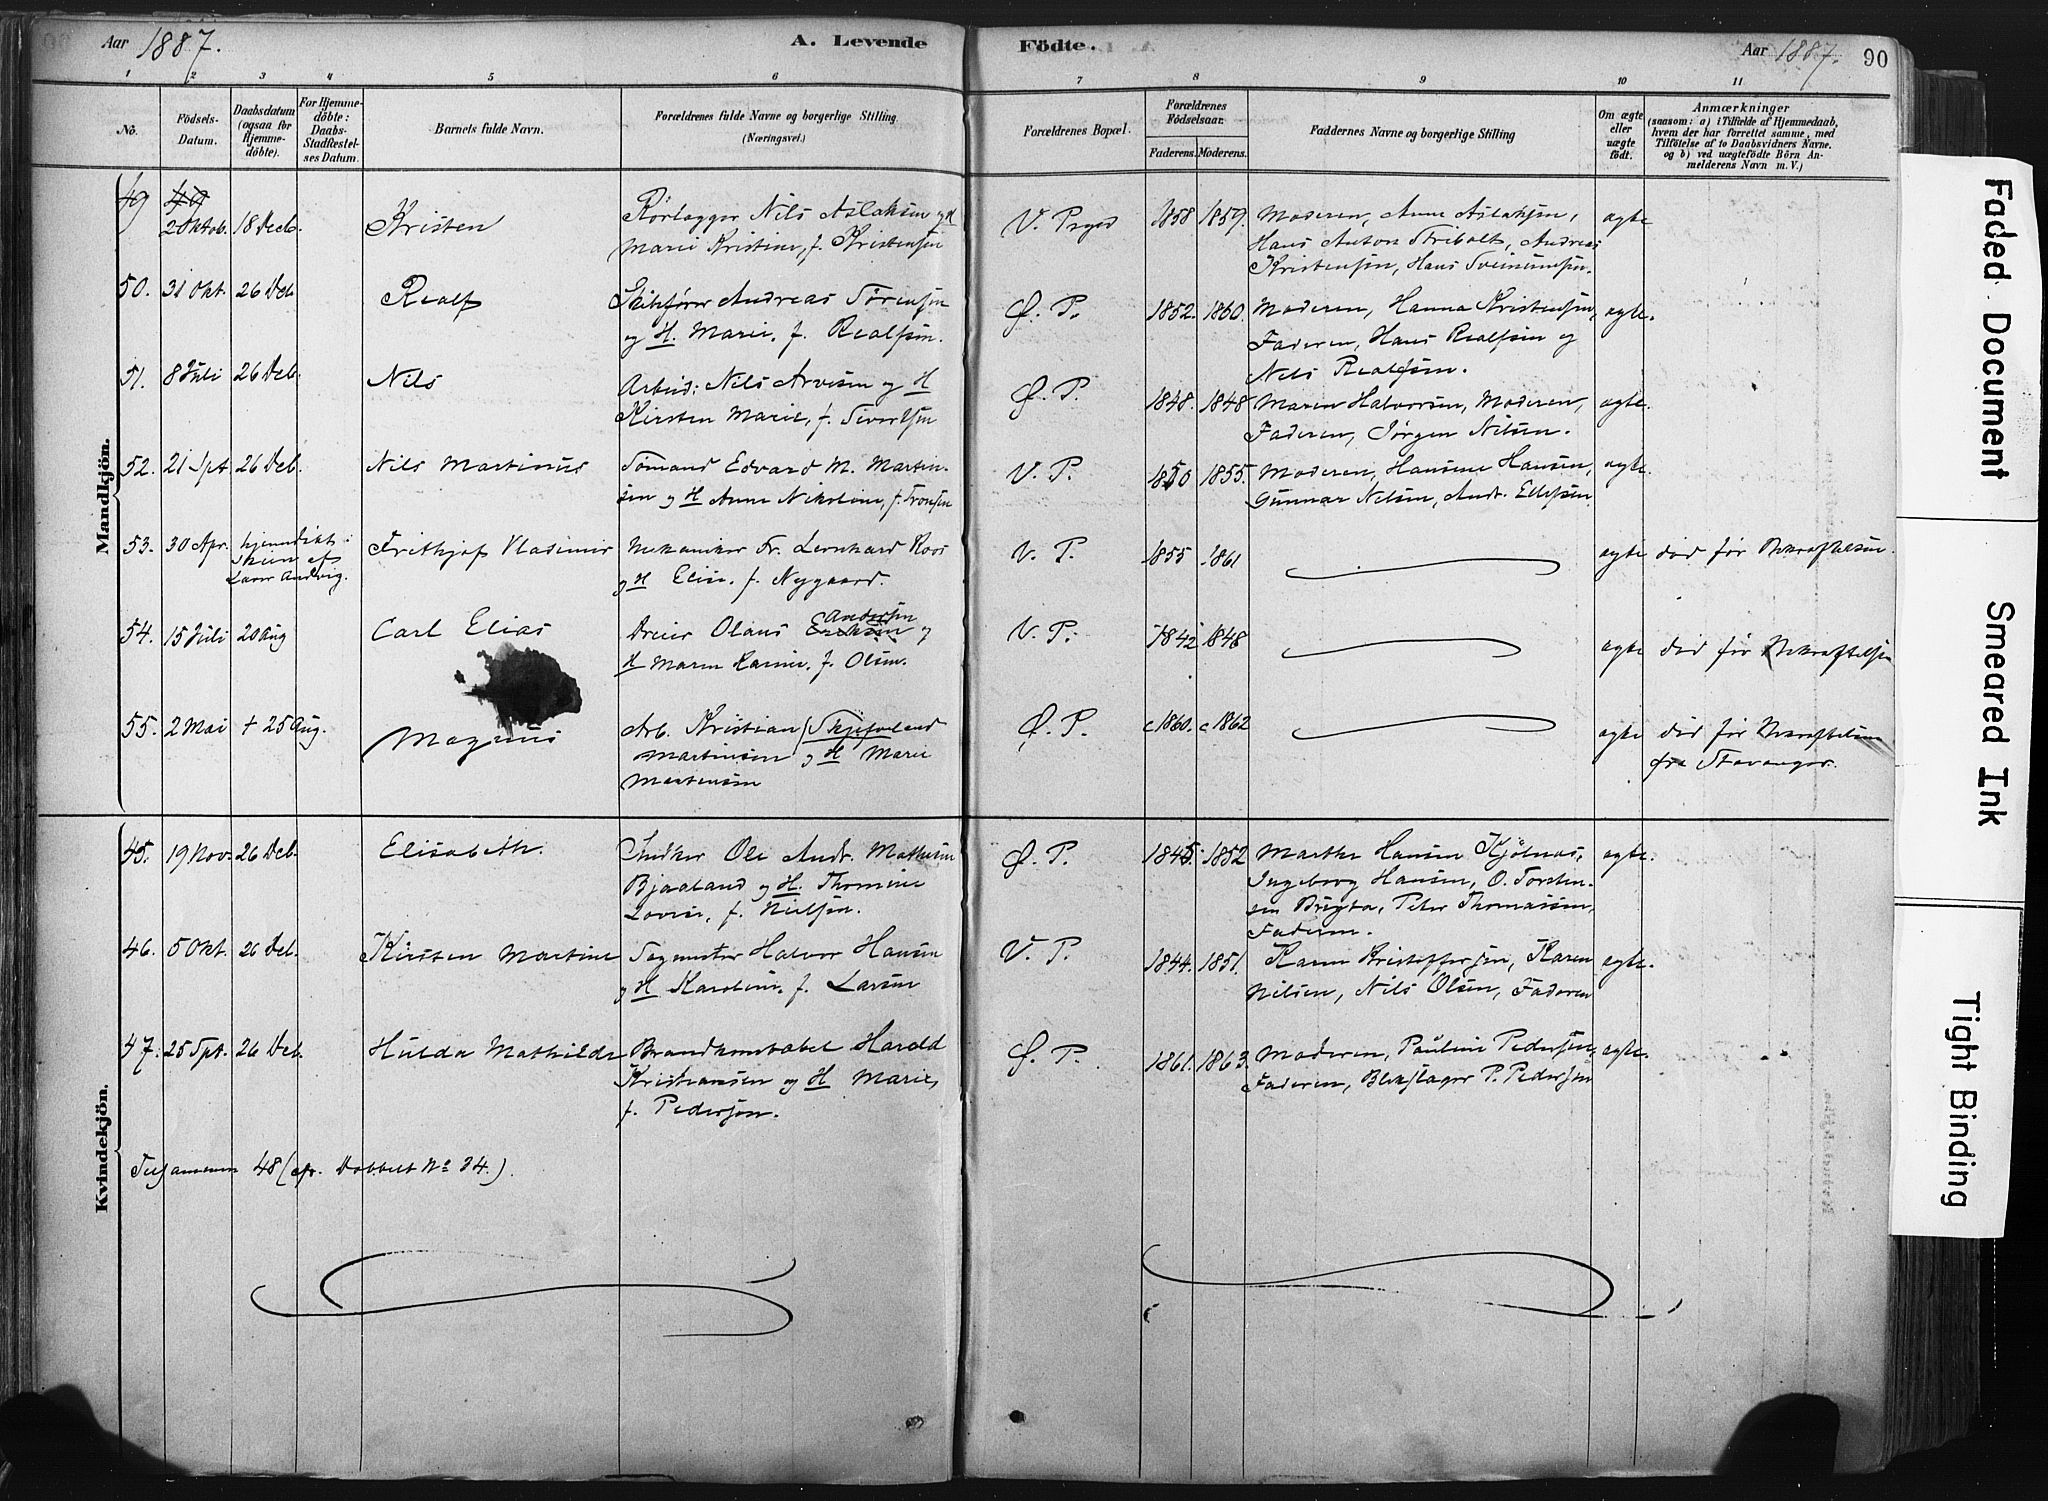 Aar 1887. A. Levende Födte. Aar 1887. 90
1 2 3 4 5 6 7 8 9 10 11
No.
Födsels-
Datum.
Daabsdatum
(ogsaa for
Hjemme-
döbte).
For Hjemme-
döbte:
Daabs-
Stadfæstel-
ses Datum.
Barnets fulde Navn.
Forældrenes fulde Navne og borgerlige Stilling.
(Næringsvei.)
Forældrenes Bopæl.
Forældrenes
Födselsaar.
Faderens. Moderens.
Faddernes Navne og borgerlige Stilling
Om ægte
eller
uægte
födt.
Anmærkninger
(saasom: a) i Tilfælde af Hjemmedaab,
hvem der har forrettet samme, med
Tilföielse af to Daabsvidners Navne,
og b) ved uægtefödte Börn An-
melderens Navn m.V.)
Mandkjön.
49 2 Oktob. 18 Decb. Kristen
Rörlægger Nils Aslaksen og H
Marie Kristine, f. Kristensen
V. Prgrd 1858 1859.
Moderen, Anne Aslaksen,
Hans Anton Tribolt, Andreas
Kristensen, Hans
ægte
50. 31 Okt. 26 Deb. Realf
Andreas Törensen
og H. Marie, f. Realfsen.
Ø. P. 1852. 1860.
Moderen, Hanna Kristensen,
Faderen, Hans Realfsen og
Nils Realfsen.
ægte.
51. 8 Juli 26 Deb. Nils
Arbeid: Nils Arvesen og H
Kirsten Marie, f. Sivertsen
Ø. P. 1848. 1848
Maren Halvorsen, Moderen,
Faderen, Jörgen Nilsen.
ægte.
52. 21 Spt 26 Deb. Nils Martinus
Sömand Edvard M. Martin-
sen og H Anne Nikoline, f. Tronsen
V. P. 1850 1855.
Moderen, Hansine Hansen,
Gunnar Nilsen, Andr. Ellefsen
ægte
53. 30 Apr. hjemmedöbt i
Skien af
Frithjof Vladimir
Mekaniker Fr. Lernhard Roos
og H Elise, f. Nygaard.
V. P. 1855 1861 ægte död för Bekræftelsen.
54. 15 Juli 20 Aug Carl Elias
Dreier Olaus Eriksen Andersen og
H Maren Karine, f. Olsen.
V. P. 1842 1848 ægte död för Bekræftelsen
55. 2 Mai + 25 Aug. Magnus
Arb. Kristian (Skjeveland
Martinsen og H Marie
Martinsen
Ø. P. c 1860. c 1862 ægte död för Bekræftelsen
fra Stavanger.
Kvindekjön.
45. 19 Nov. 26 Deb. Elisabeth.
Snedker Ole Andr. Mathisen
Bjaaland og H. Thomine
Lovise, f. Nielsen.
Ø. P. 1845. 1852
Marthe Hansen Kjölnæs,
Ingeborg Hansen, O. Torsten-
sen Bregta, Peter Thomassen,
Faderen.
ægte.
46. 5 Okt. 26 Deb. Kirsten Martine
Sagmester Halvor Hansen
og H Karoline, f. Larsen
V. P. 1844. 1851.
Karen Kristoffersen, Karen
Nilsen, Nils Olsen, Faderen
ægte.
47. 25 Spt. 26 Deb. Hulda Mathilde
Brandkonstabel Harald
Kristiansen og H Marie,
f. Pedersen.
Ø. P. 1861. 1863.
Moderen, Pauline Pedersen,
Faderen, Blikslager P. Pedersen
ægte.
Tilsammen 48 (cfr. Dobbelt No 34.).
Faded Document
Smeared Ink
Tight Binding